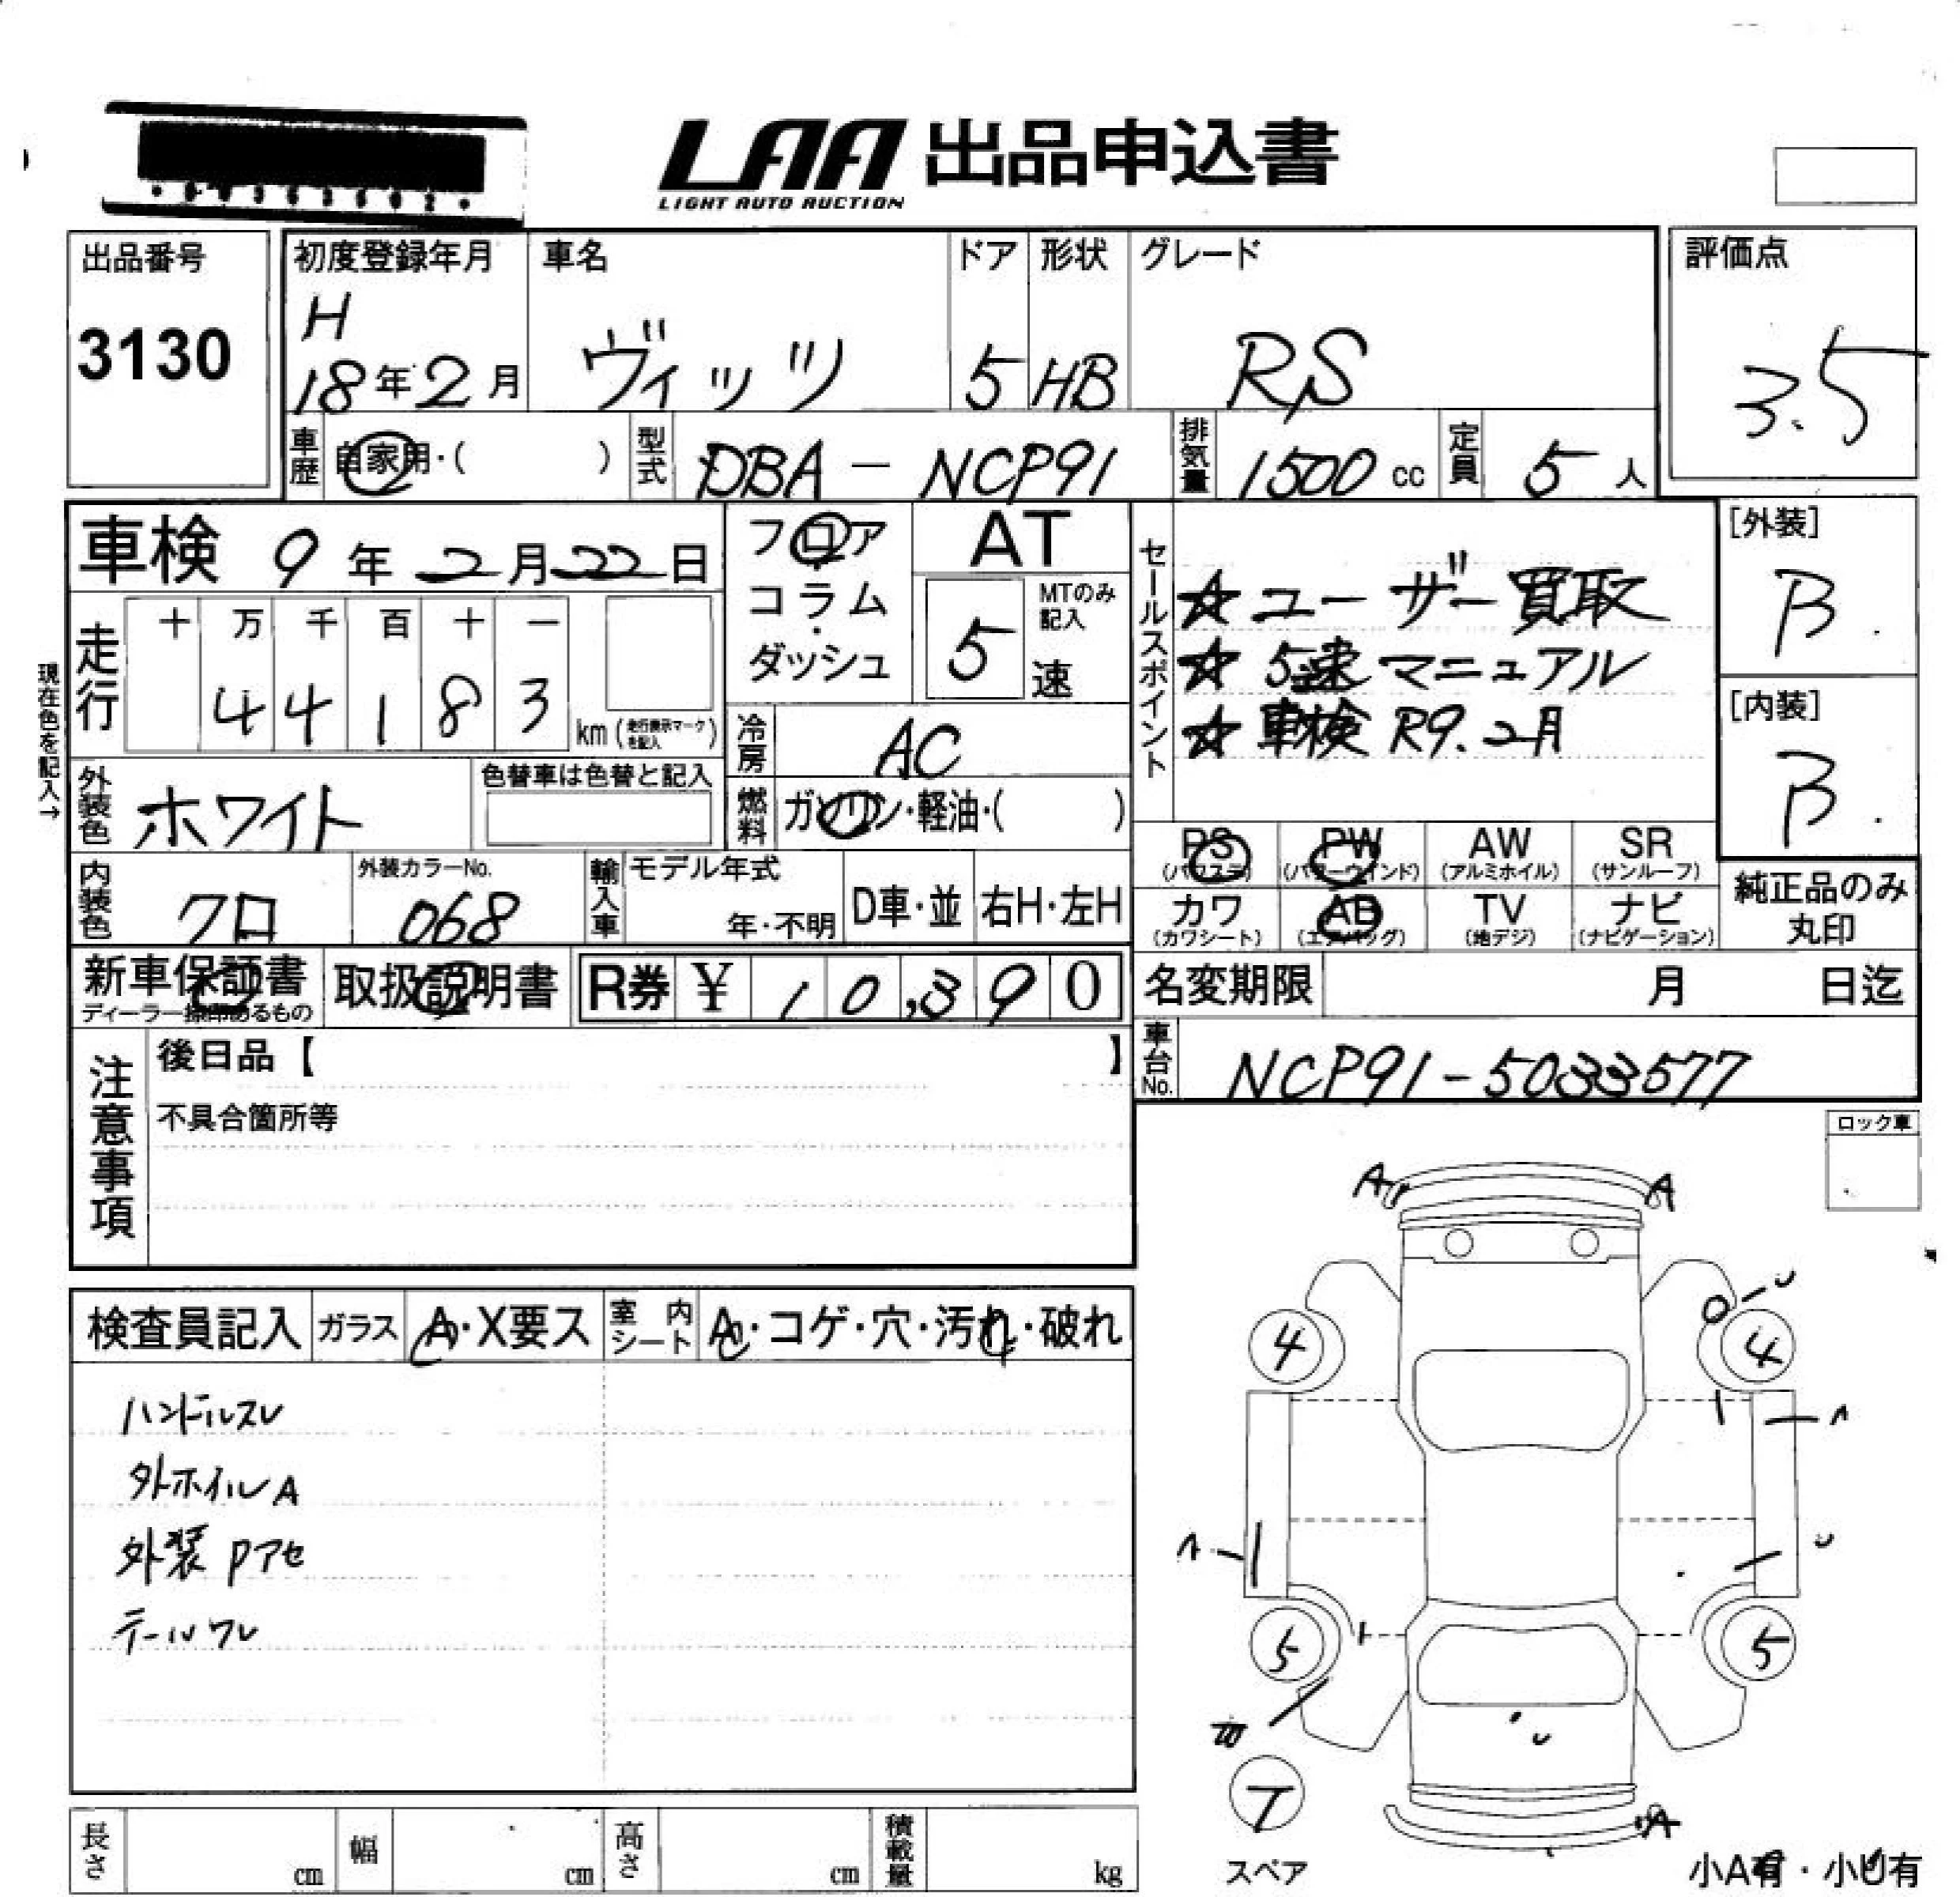 LAA 出品申込書
LIGHT AUTO AUCTION
出品番号
3130
初度登録年月
H
18年2月
車名
ヴィッツ
ドア
5
形状
HB
グレード
RS
評価点
3.5
車歴
自家用・( )
型式
DBA - NCP91
排気量
1500 cc
定員
5 人
車検 9年2月22日
フロア
・
コラム
・
ダッシュ
AT
MTのみ記入
5
速
セールスポイント
☆ユーザー買取
☆5速マニュアル
☆車検 R9.2月
[外装]
B
[内装]
B
現在色を記入→
走行
十 万 千 百 十 一
4 4 1 8 3
km(走行表示マークを記入)
冷房
AC
外装色
ホワイト
色替車は色替と記入
燃料
ガソリン・軽油・( )
PS (パワステ)
PW (パワーウインド)
AW (アルミホイル)
SR (サンルーフ)
カワ (カワシート)
AB (エアバッグ)
TV (地デジ)
ナビ (ナビゲーション)
純正品のみ
丸印
内装色
クロ
外装カラーNo.
068
輸入車
モデル年式
年・不明
D車・並
右H・左H
新車保証書
ディーラー捺印あるもの
取扱説明書
R券 ¥ 10,390
名変期限
月 日迄
車台No.
NCP91-5033577
注意事項
後日品【 】
不具合箇所等
ロック車
検査員記入
ガラス
A・X要ス
室内シート
A・コゲ・穴・汚れ・破れ
ハンドルスレ
外ホイルA
外装Pアセ
テールワレ
A A
U
4 4
A
U
5 5
U
T
スペア
A
小A有・小U有
長さ cm
幅 cm
高さ cm
積載量 kg